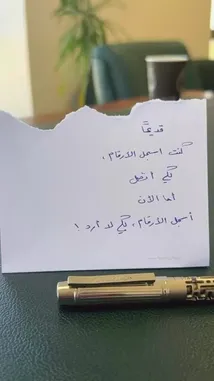 قديمًا
كنت اسجل الارقام ،
لكي أتصل
أما الآن
أسجل الارقام ، لكي لا أرد !